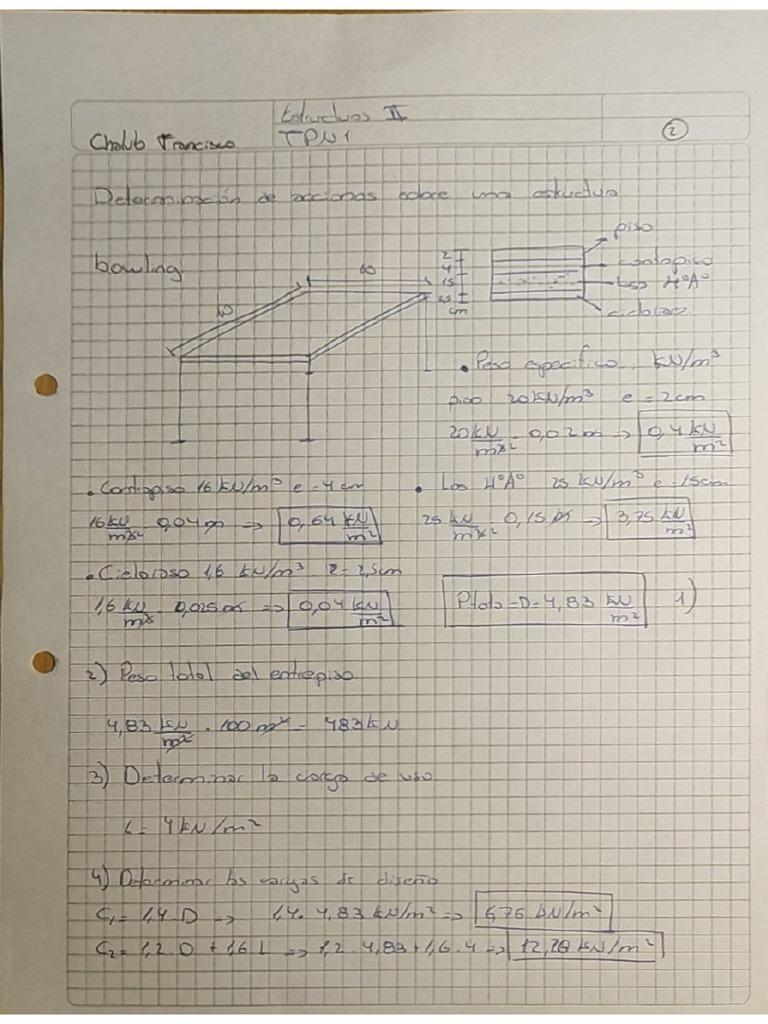 Estructuras II
Chalub Francisco TPN1 2
Determinación de acciones sobre una estructura
bowling
10
10
2
4
15
2,5
cm
piso
contrapiso
Losa HºAº
cieloraso
• Peso especifico kN/m³
piso 20 kN/m³ e = 2cm
20 kN/m³² · 0,02 m => 0,4 kN/m²
• Contrapiso 16 kN/m³ e = 4 cm
16 kN/m³² · 0,04 m => 0,64 kN/m²
• Losa HºAº 25 kN/m³ e = 15cm
25 kN/m³² · 0,15 m => 3,75 kN/m²
• Cieloraso 1,6 kN/m³ e = 2,5cm
1,6 kN/m³ · 0,025 m => 0,04 kN/m²
Ptoto = D = 4,83 kN/m² 1)
2) Peso total del entrepiso
4,83 kN/m² · 100 m² = 483 kN
3) Determinar la carga de uso
L = 4 kN/m²
4) Determinar las cargas de diseño
C₁ = 1,4 D => 1,4 · 4,83 kN/m² => 6,76 kN/m²
C₂ = 1,2 D + 1,6 L => 1,2 · 4,83 + 1,6 · 4 => 12,20 kN/m²